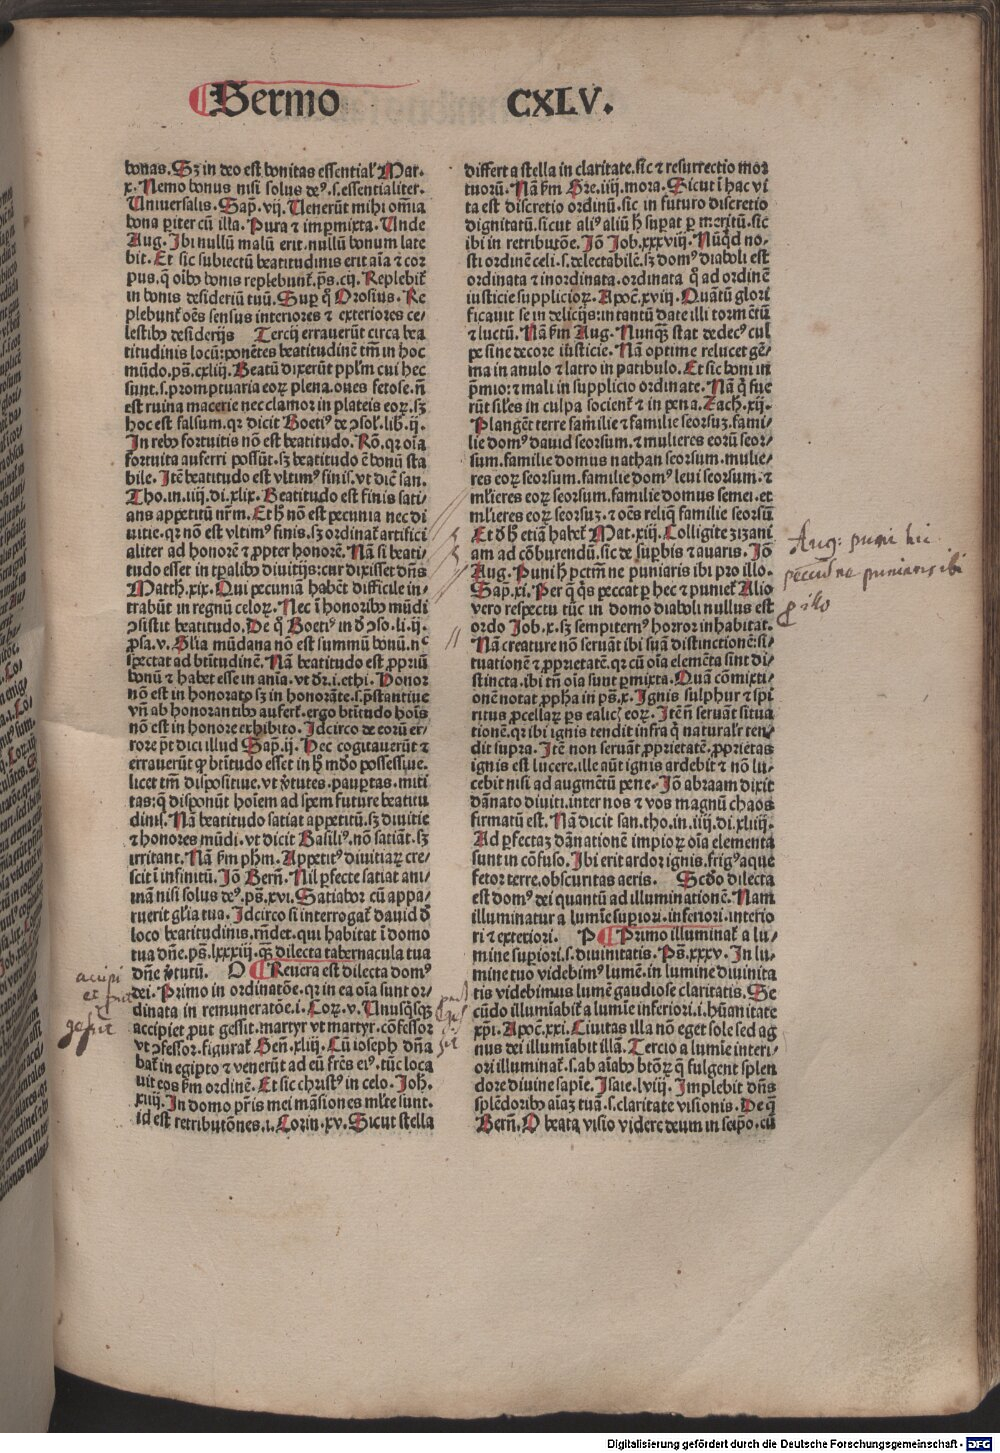 Sermo CXLV.
bonas. Sz in deo est bonitas essential' Mar.
x. Nemo bonus nisi solus deꝰ .s. essentialiter.
Uniuersalis. Sap̄. vij. Uenerūt mihi om̄ia
bona ꝑiter cū illa. Pura ⁊ imꝑmixta. Unde
Aug. Ibi nullū malū erit. nullū bonum late
bit. Et sic subiectū beatitudinis erit aīa ⁊ cor
pus. q̄ oībꝰ bonis replebunt̄. ps̄. cij. Replebit̄
in bonis desideriū tuū. Sup̄ q̄ Orosius. Re
plebunt̄ oēs sensus interiores ⁊ exteriores ce/
lestibꝰ desiderijs Tercij errauerūt circa bea
titudinis locū: ponētes beatitudinē tm̄ in hoc
mūdo. ps̄. cxliij. Beatū dixerūt ppl̄m cui hec
sunt .s. promptuaria eoꝝ plena. oues fetose. n̄
est ruina macerie nec clamor in plateis eoꝝ. sz
hoc est falsum. qꝛ dicit Boetiꝰ de ꝯsol'. lib. ij.
In rebꝰ fortuitis nō est beatitudo. Rō. qꝛ oīa
fortuita auferri possūt. sz beatitudo ē bonū sta
bile. Itē beatitudo est vltimꝰ finis. vt dic̄ san.
Tho. in. iiij. di. xlix. Beatitudo est finis sati/
ans appetitū nr̄m. Et h̄ nō est pecunia nec di
uitie. qꝛ nō est vltimꝰ finis. sz ordinat̄ artifici
aliter ad honorē ⁊ ꝓpter honorē. Nā si beati/
tudo esset in tꝑalibꝰ diuitijs: cur dixisset dn̄s
Matth. xix. Qui pecuniā habēt difficile in/
trabūt in regnū celoꝝ. Nec ī honoribꝰ mūdi
ꝯsistit beatitudo. De q̄ Boetiꝰ in d̄ ꝯso. li. ij.
ꝓsa. v. Gl'ia mūdana nō est summū bonū. nᶜ
spectat ad btītudinē. Nā beatitudo est ꝓpriū
bonū ⁊ habet esse in anīa. vt dr̄. i. ethi. Honor
nō est in honorato sz in honorāte .s. p̄stantiue
vn̄ ab honorantibꝰ aufert̄. ergo btītudo hoīs
nō est in honore exhibito. Idcirco de eorū er/
rore p̄t dici illud Sap̄. ij. Hec cogitauerūt ⁊
errauerūt ꝙ btītudo esset in h̄ mūdo possessiue.
licet tm̄ dispositiue. vt v̓tutes. pauꝑtas. miti
tas: q̄ disponūt hoīem ad spem future beatitu
dinis. Nā beatitudo satiat appetitū. sz diuitie
⁊ honores mūdi. vt dicit Basiliꝰ. nō satiāt. sz
irritant. Nā s̄m phm̄. Appetitꝰ diuitiaꝝ cre/
scit ī infinitū. Iō Bern̄. Nil ꝑfecte satiat ani/
mā nisi solus deꝰ. ps̄. xvi. Satiabor cū appa/
ruerit gl'ia tua. Idcirco si interrogat̄ dauid d̄
loco beatitudinis. rn̄det. qui habitat ī domo
tua dn̄e. ps̄. lxxxiij. q̄ꝫ dilecta tabernacula tua
dn̄e v̓tutū. O Reuera est dilecta domꝰ
dei. Primo in ordinatōe. qꝛ in ea oīa sunt or/
dinata in remuneratōe. i. Coꝝ. v. Unusq̄sqꝫ
accipiet ꝓut gessit. martyr vt martyr. cōfessor
vt ꝯfessor. figurat̄ Gen̄. xliij. Cū ioseph dn̄a
bat̄ in egipto ⁊ venerūt ad eū fr̄es eiꝰ. tūc loca
uit eos s̄m ordinē. Et sic christꝰ in celo. Joh̄.
xiiij. In domo pr̄is mei māsiones ml'te sunt.
id est retributōnes. i. Corin. xv. Sicut stella
differt a stella in claritate. sic ⁊ resurrectio mor
tuorū. Nā s̄m Gre. iiij. mora. Sicut ī hac vi
ta est discretio ordinū. sic in futuro discretio
dignitatū. sicut aliꝰ aliū h̄ suꝑat ꝑ meritū. sic
ibi in retributōe. Iō Job. xxxviij. Nūq̇d no/
sti ordinē celi .s. delectabilē. sz domꝰ diaboli est
ordinata ⁊ inordinata. ordinata q̄ ad ordinē
iusticie supplicioꝝ. Apoc̄. xviij. Quātū glori
ficauit se in delicijs: in tantū date illi tormētū
⁊ luctū. Nā s̄m Aug. Nunqꝫ stat dedecꝰ cul
pe sine decore iusticie. Nā optime relucet gē/
ma in anulo ⁊ latro in patibulo. Et sic boni in
p̄mio: ⁊ mali in supplicio ordinate. Nā q̇ fue
rūt sil'es in culpa socient̄ ⁊ in pena. Zach. xij.
Plangēt terre familie ⁊ familie seorsuz. fami/
lie domꝰ dauid seorsum. ⁊ mulieres eorū seor/
sum. familie domus nathan seorsum. mulie/
res eoꝝ seorsum. familie domꝰ leui seorsum. ⁊
ml'ieres eoꝝ seorsum. familie domus semei. et
ml'ieres eoꝝ seorsuz. ⁊ oēs reliq̄ familie seorsū
Et d̄ h̄ etiā habet̄ Mat. xiij. Colligite zizani
am ad cōburendū. sic de suꝑbis ⁊ auaris. Iō
Aug. Puni h̄ pctm̄ ne puniaris ibi pro illo.
Sap̄. xi. Per q̄ q̇s peccat ꝑ hec ⁊ puniet̄ Alio
vero respectu tūc in domo diaboli nullus est
ordo Job. x. sz sempiternꝰ horror inhabitat.
Nā creature nō seruāt ibi suā distinctionē: si/
tuationē ⁊ ꝓprietatē. qꝛ cū oīa elemēta sint di/
stincta. ibi tn̄ oīa sunt ꝑmixta. Quā cōmixti/
onē notat ꝓpha in ps̄. x. Ignis sulphur ⁊ spi
ritus ꝓcellaꝝ ꝑs calicꝭ eoꝝ. Itē n̄ seruāt situa
tionē. qꝛ ibi ignis tendit infra q̇ naturalr̄ ten/
dit supra. Itē non seruāt ꝓprietatē. ꝓprietas
ignis est lucere. ille aūt ignis ardebit ⁊ nō lu/
cebit nisi ad augmētū pene. Iō abraam dixit
dānato diuiti. inter nos ⁊ vos magnū chaos
firmatū est. Nā dicit san. tho. in. iiij. di. xliiij.
Ad ꝑfectaz dānationē impioꝝ oīa elementa
sunt in cōfuso. Ibi erit ardor ignis. frigꝰ aque
fetor terre. obscuritas aeris. Scd̄o dilecta
est domꝰ dei quantū ad illuminationē. Nam
illuminatur a lumīe suꝑiori. inferiori. interio
ri ⁊ exteriori. P Primo illuminat̄ a lu/
mine suꝑiori .s. diuinitatis. Ps̄. xxxv. In lu/
mine tuo videbimꝰ lumē. in lumine diuinita
tis videbimus lumē gaudiose claritatis. Se
cūdo illumīabit̄ a lumīe inferiori .i. hūanitate
xp̄i. Apoc̄. xxi. Ciuitas illa nō eget sole sed ag
nus dei illumīabit illā. Tercio a lumīe interi/
ori illuminat̄ .s. ab aīabꝰ btōꝝ q̄ fulgent splen
dore diuine sapīe. Isaie. lviij. Implebit dn̄s
splēdoribꝰ aīaz tuā .s. claritate visionis. De q̄
Bern̄. O beata visio videre deum in seip̄o. cū
Aug: puni hic
peccatū ne puniaris ibi
ꝓ illo
accipi
et
gessit
Digitalisierung gefördert durch die Deutsche Forschungsgemeinschaft - DFG